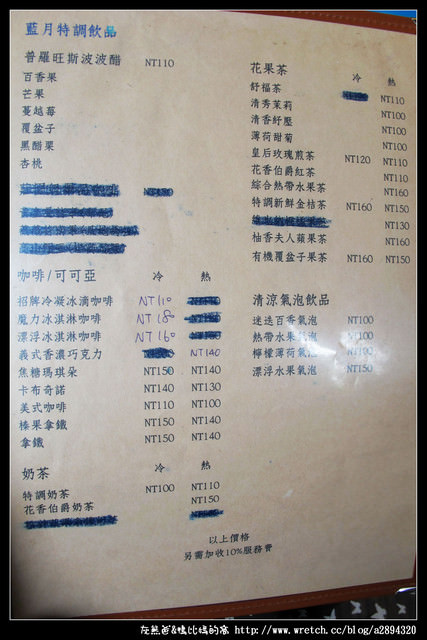 藍月特調飲品
普羅旺斯波波醋 NT110
百香果
芒果
蔓越莓
覆盆子
黑醋栗
杏桃
咖啡/可可亞 冷 熱
招牌冷凝冰滴咖啡 NT110
魔力冰淇淋咖啡 NT180
漂浮冰淇淋咖啡 NT160
義式香濃巧克力 NT140
焦糖瑪琪朵 NT150 NT140
卡布奇諾 NT140 NT130
美式咖啡 NT110 NT100
榛果拿鐵 NT150 NT140
拿鐵 NT150 NT140
奶茶 冷 熱
特調奶茶 NT100 NT110
花香伯爵奶茶 NT150
花果茶 冷 熱
舒福茶 NT110
清秀茉莉 NT100
清香紓壓 NT100
薄荷甜菊 NT100
皇后玫瑰煎茶 NT120 NT110
花香伯爵紅茶 NT110
綜合熱帶水果茶 NT160
特調新鮮金桔茶 NT160 NT150
NT130
柚香夫人蘋果茶 NT160
有機覆盆子果茶 NT160 NT150
清涼氣泡飲品
迷迭百香氣泡 NT100
熱帶水果氣泡 NT100
檸檬薄荷氣泡 NT100
漂浮水果氣泡 NT150
以上價格
另需加收10%服務費
灰熊爸&鴨比媽的窩 http://www.wretch.cc/blog/a2894320